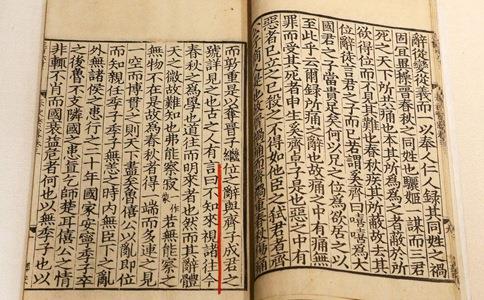 辭從變從義而一以奉人仁人録其同姓之禍
固宜異操晉春秋之同姓也驪姬一謀而三君
死之天下所共痛也本其所為為之者蔽於所
欲得位而不見其難也春秋疾其所蔽故去其
位辭徒言君之子而已若謂奚齊曰嘻嘻為大
國君之子富貴足矣何以兄之位為欲居之以
至此乎云爾録所痛之辭也故痛之中有痛無
罪而受其死者申生奚齊卓子是也惡之中有
惡者己立之己殺之不得如他臣之弑君者齊
公子商人是也故晉禍痛而齊禍
而敦重是以奪晉子繼位之辭與齊子成君之
號詳見之也古之人有言曰不知來視諸往今
春秋之為學也道往而明來者也然而其辭體
天之微故難知也弗能察寂作若無能察之
無物不在是故為春秋者得一端而多連之見
一空而博貫之則天下盡矣魯僖公以亂即位
而知親任季子季子無恙之時內無臣下之亂
外無諸侯之患行之二十年國家安寧季子卒
之後魯不支隣國之患直乞師楚耳僖公之情
非輒不肖而國衰益危者何也以無季子也